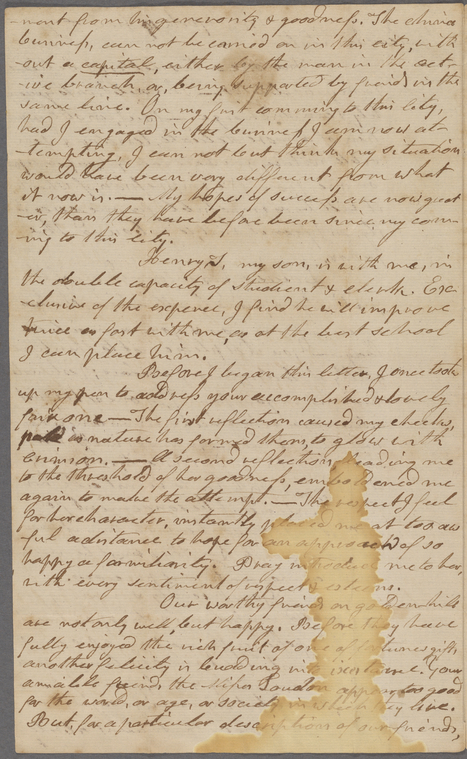 nent from his generosity & goodness. The
business, can not be carried on in this city, with
out a capital, either by the man in the act-
ive branch, or, being supported by friends in the
same line. On my first comming to this city,
had I engaged in the business I am now at-
tempting, I can not but think my situation
would have been very different from what
it now is. — My hopes of success are now great
er, than they have before been since my com-
ing to this city.
Henry, my son, is with me, in
the double capacity of student & clerk. Ex-
clusive of the expence, I find he will improve
twice as fast with me, as at the best school
I can place him.
Before I began this letter, I once took
up my pen to address your accomplished & lovely
fair one — The first reflection caused my cheeks,
as nature has formed them, to glow with
crimson. — A second reflection, leading me
to the threshold of her goodness, emboldened me
again to make the attempt. — The respect I feel
for her character, instantly placed me at too aw
ful a distance to hope for an approach of so
happy a familiarity. Pray introduce me to her,
with every sentiment of respect & esteem.
Our worthy friends on goldenhill
are not only well, but happy. Before they have
fully enjoyed the rich fruit of one of fortunes gifts,
another felicity is budding into existence. Your
amiable friend, the Misses Loudon appear too good
for the world, or age, or society in which they live.
But, for a particular description of our friends,